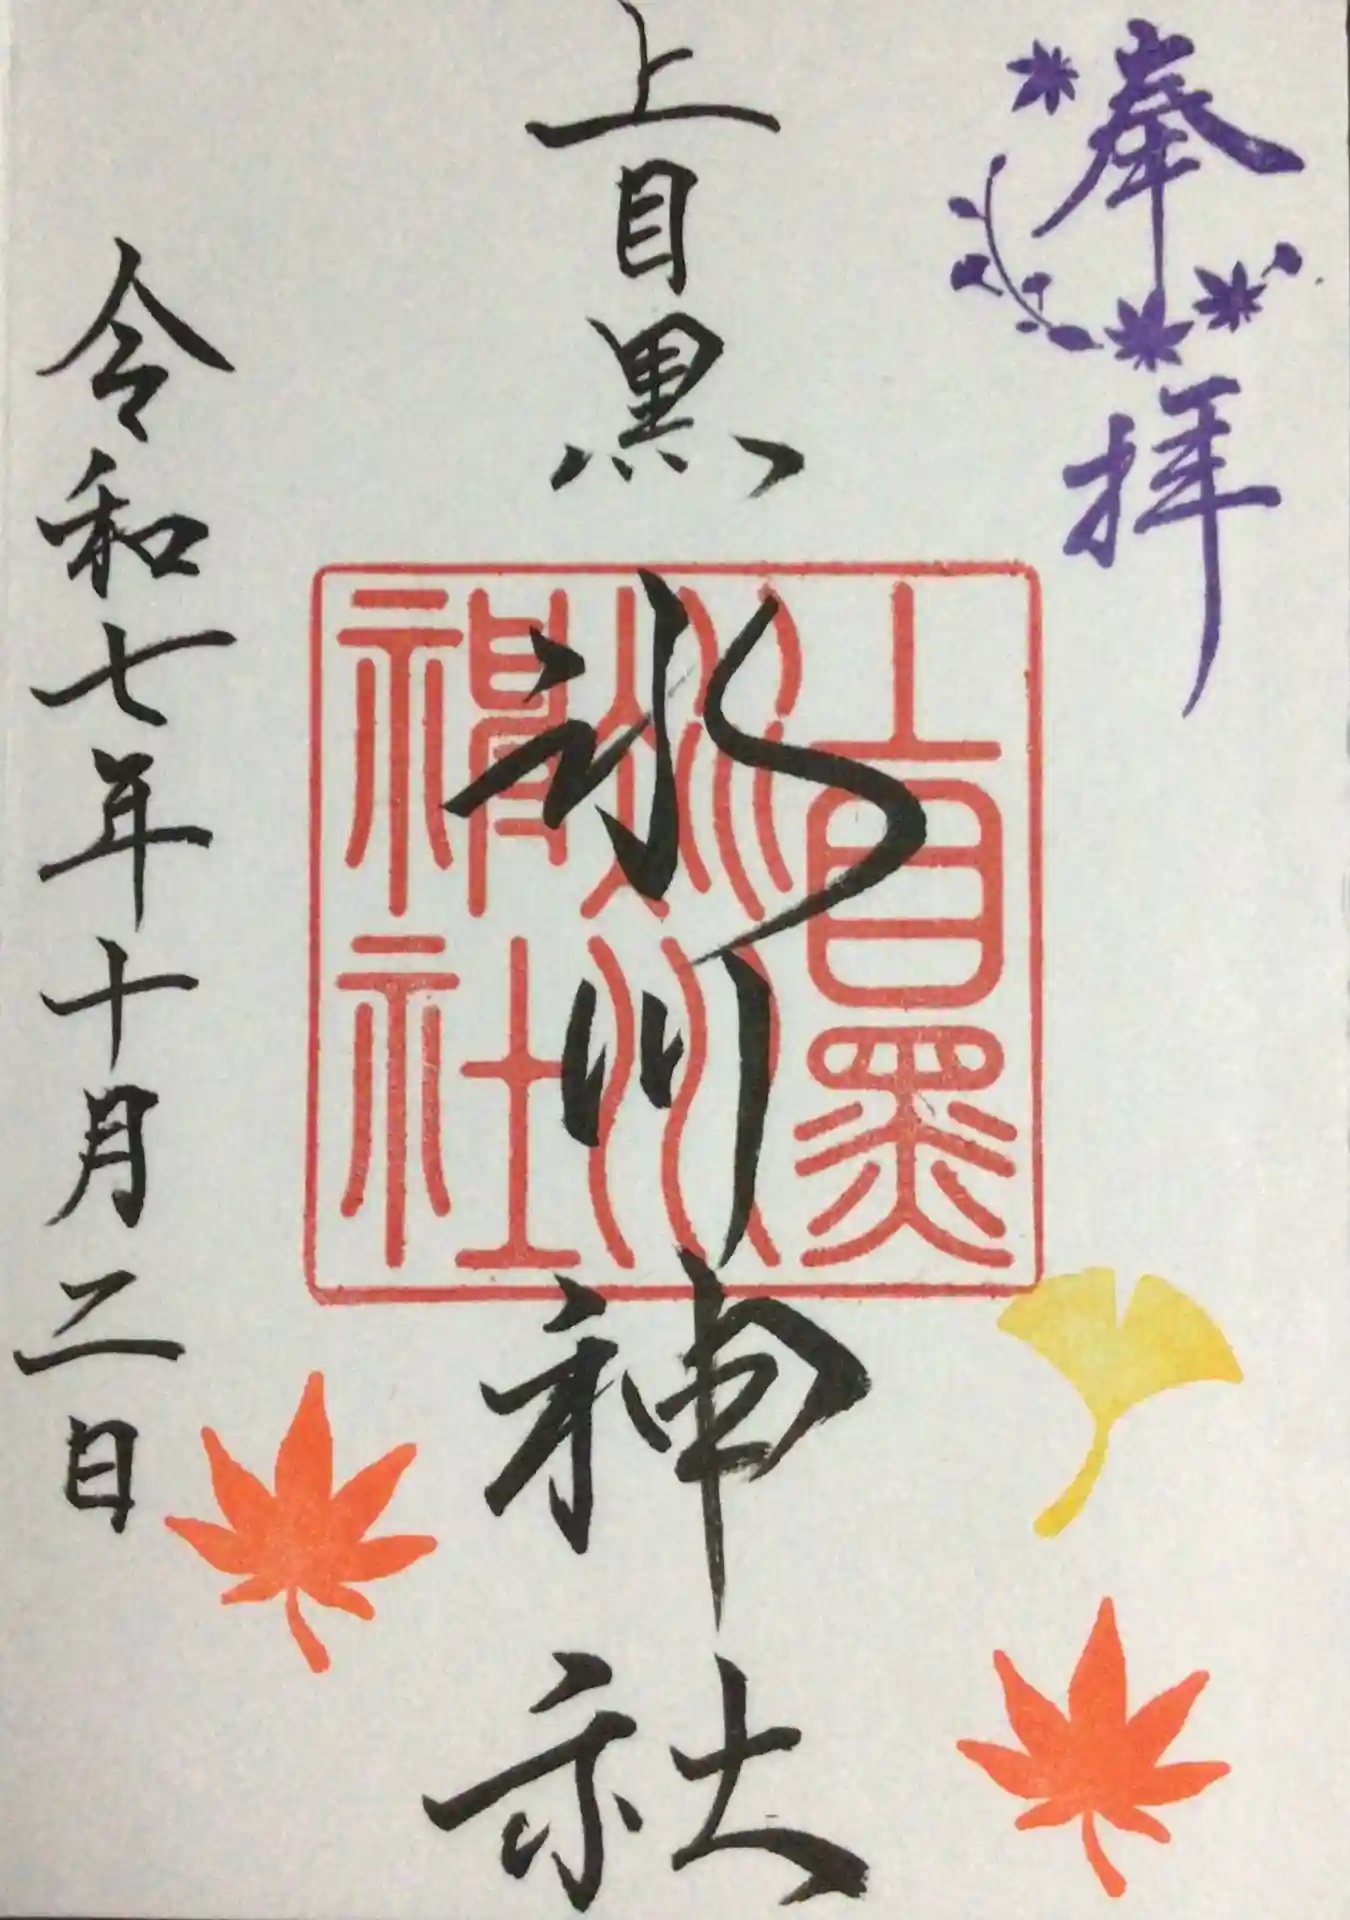 奉拝
上目黒氷川神社
上目黒
氷川
神社
令和七年十月二日